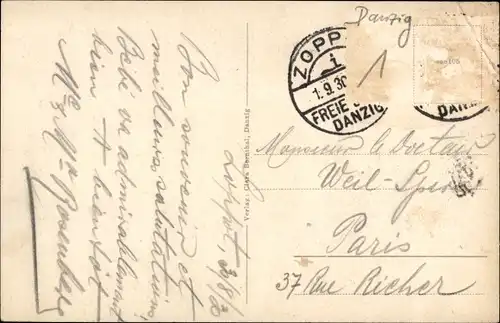 Danzig
ZOPP
1
1.9.30
FREIE
DANZIG
DANZ
1
Zoppot, 30/8/30
Bon souvenir et
meilleures salutations.
Bébé va admirablement
bien. A bientôt
Mr & Mme Rosenberg
Verlag: Clara Bernthal, Danzig
Monsieur le Docteur
Weil-
Paris
37 Rue Richer